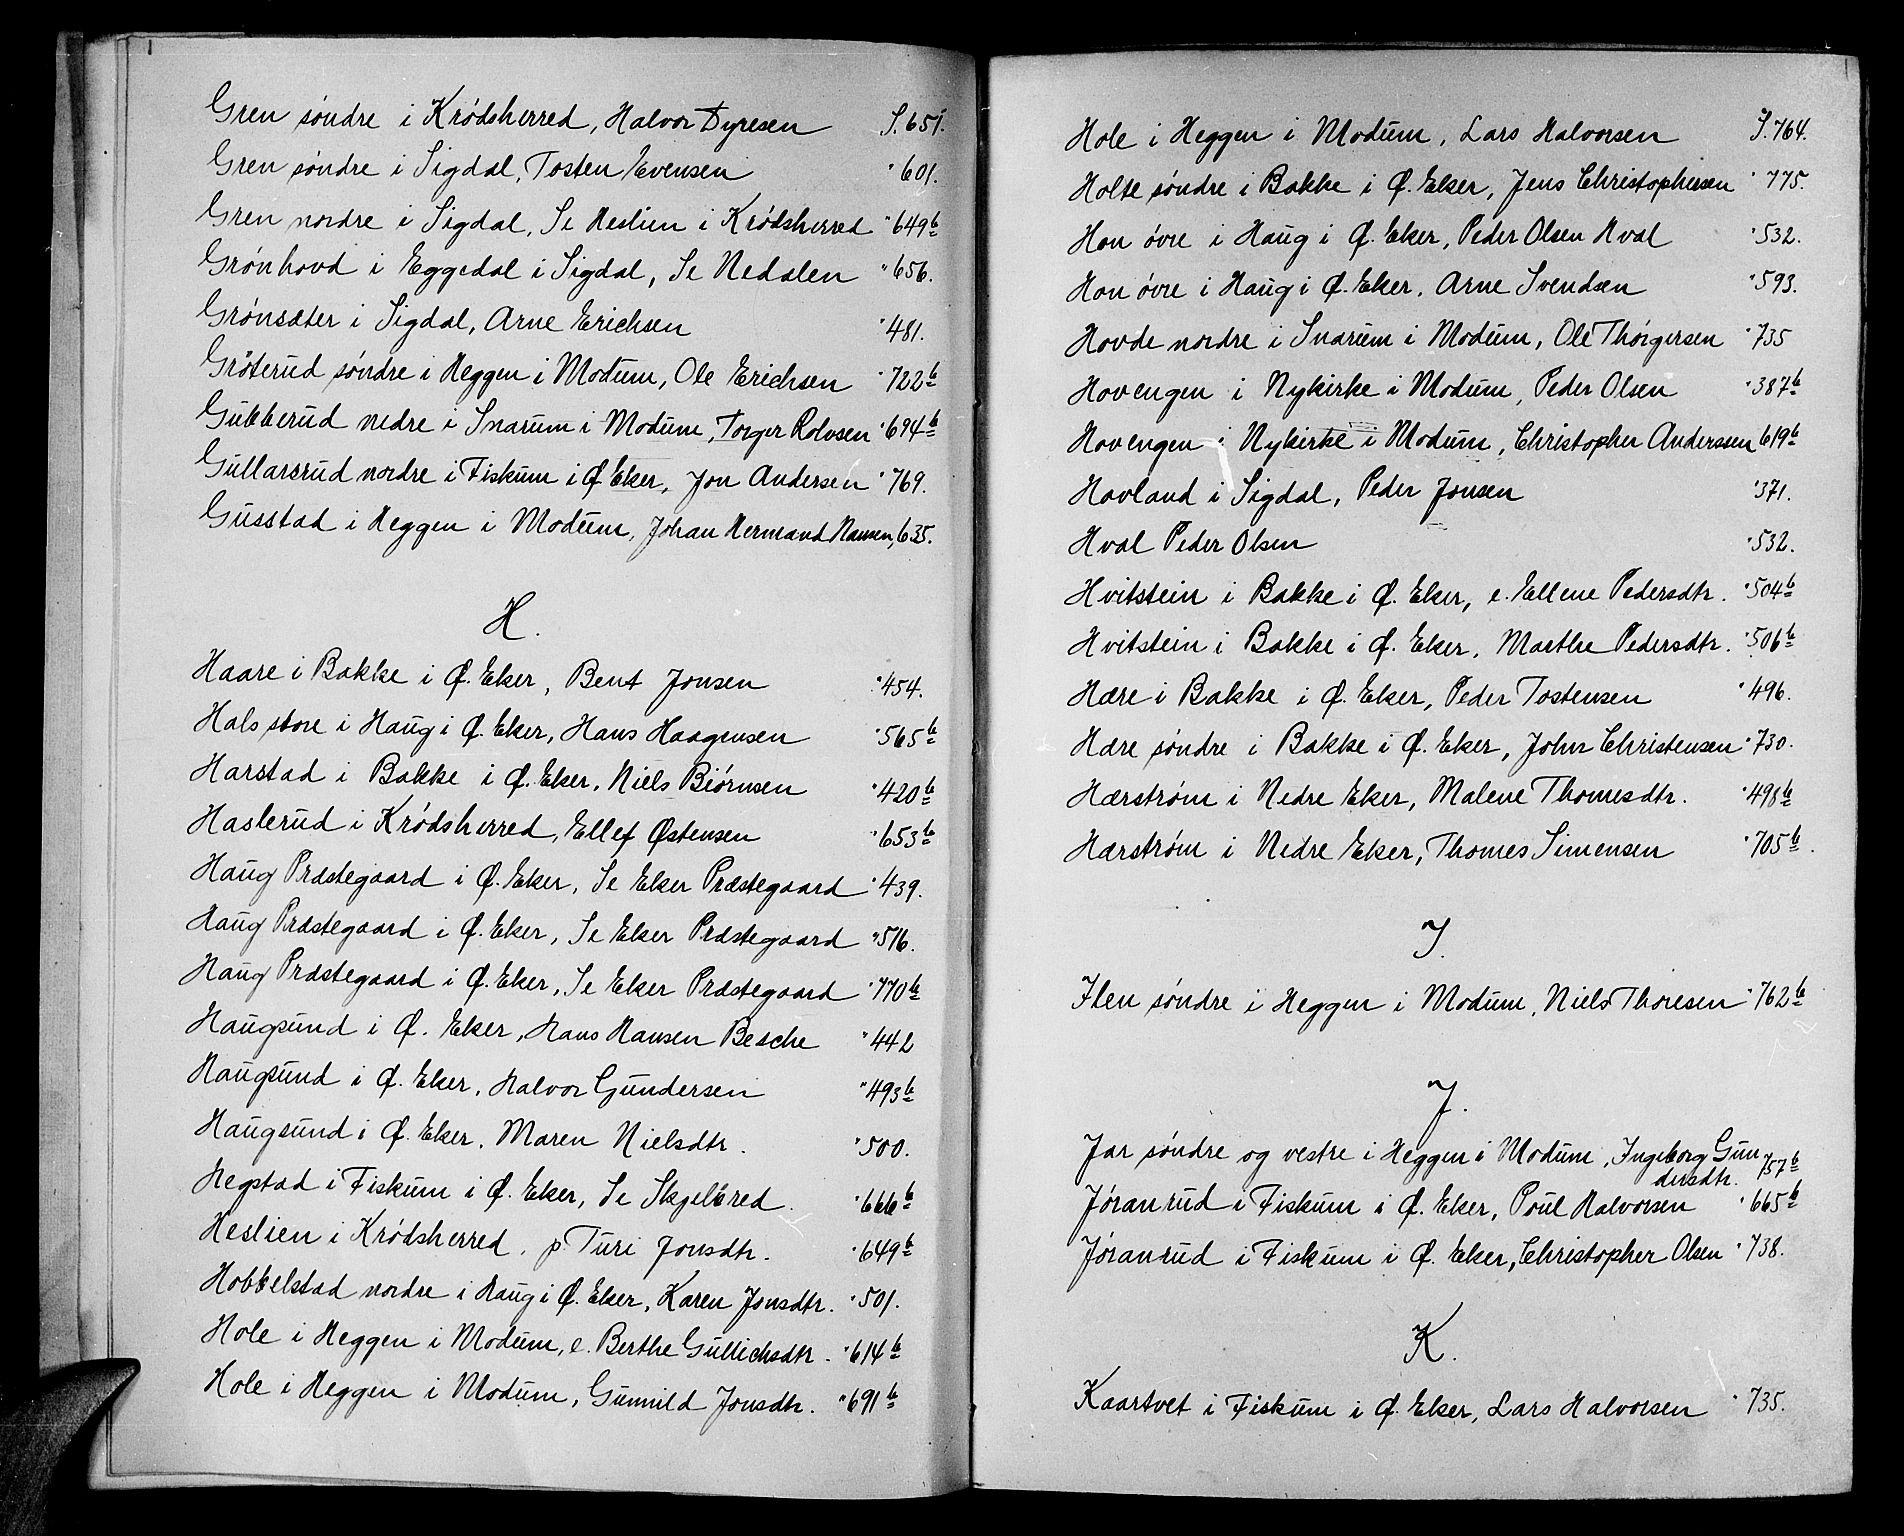 Gren søndre i Krødsherred, Halvor Dyresen S. 651.
Gren søndre i Sigdal, Tosten Evensen " 601.
Gren nordre i Sigdal, Se Heslien i Krødsherred " 649b
Grønhovd i Eggedal i Sigdal, Se Nedalen " 656.
Grønsæter i Sigdal, Arne Erichsen " 481.
Grøterud søndre i Heggen i Modum, Ole Erichsen " 722b
Gubberud nedre i Snarum i Modum, Torger Rolvsen " 694b
Gullarsrud nordre i Fiskum i Ø. Eker, Jon Andersen " 769.
Gusstad i Heggen i Modum, Johan Hermand Hansen, 635.
H.
Haare i Bakke i Ø. Eker, Bent Jonsen " 454.
Hals store i Haug i Ø. Eker, Hans Haagensen " 565b
Harstad i Bakke i Ø. Eker, Niels Biørnsen " 420b
Haslerud i Krødsherred, Ellef Østensen " 653b
Haug Præstegaard i Ø. Eker, Se Eker Præstegaard " 439.
Haug Præstegaard i Ø. Eker, Se Eker Præstegaard " 516.
Haug Præstegaard i Ø. Eker, Se Eker Præstegaard " 770b
Haugsund i Ø. Eker, Hans Hansen Besche " 442
Haugsund i Ø. Eker, Halvor Gundersen " 493b
Haugsund i Ø. Eker, Maren Nielsdtr. " 500.
Hegstad i Fiskum i Ø. Eker, Se Skjelbred. " 666b
Heslien i Krødsherred, p. Turi Jonsdtr. " 649b
Hobbelstad nordre i Haug i Ø. Eker, Karen Jonsdtr. " 501.
Hole i Heggen i Modum, e. Berthe Gullichsdtr. " 614b
Hole i Heggen i Modum, Gunnild Jonsdtr. " 691b
Hole i Heggen i Modum, Lars Halvorsen S. 764.
Holte søndre i Bakke i Ø. Eker, Jens Christophersen " 775.
Hon øvre i Haug i Ø. Eker, Peder Olsen Hval " 532.
Hon øvre i Haug i Ø. Eker, Arne Svendsen " 593.
Hovde nordre i Snarum i Modum, Ole Thorgersen " 735
Hovengen i Nykirke i Modum, Peder Olsen " 387b
Hovengen i Nykirke i Modum, Christopher Anderssen 619b
Hovland i Sigdal, Peder Jonsen " 371.
Hval Peder Olsen " 532.
Hvitstein i Bakke i Ø. Eker, e. Ellene Pedersdtr. " 504b
Hvitstein i Bakke i Ø. Eker, Marthe Pedersdtr. " 506b
Hære i Bakke i Ø. Eker, Peder Tostensen " 496.
Hære søndre i Bakke i Ø. Eker, John Christensen " 730.
Hærstrøm i Nedre Eker, Malene Thomesdtr. " 498b
Hærstrøm i Nedre Eker, Thomes Simensen " 705b.
I.
Iflen søndre i Heggen i Modum, Niels Thoresen " 762b
J.
Jar søndre og vestre i Heggen i Modum, Ingeborg Gun
dersdtr. 757b
Jøranrud i Fiskum i Ø. Eker, Poul Halvorsen " 665b
Jøranrud i Fiskum i Ø. Eker, Christopher Olsen " 738.
K.
Kaartvet i Fiskum i Ø. Eker, Lars Halvorsen " 735.